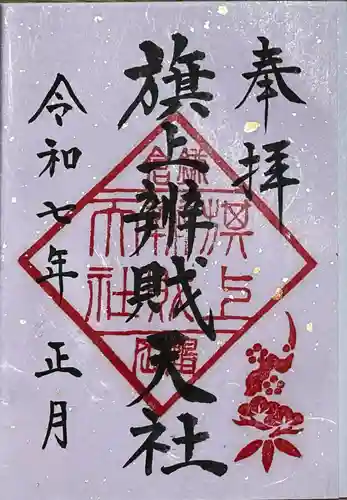 奉拝
旗上辨財天社
令和七年 正月